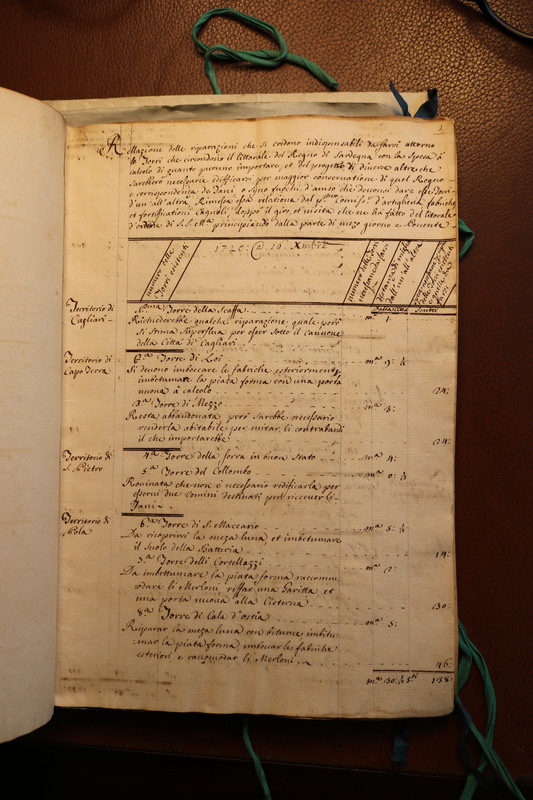 1
Rellazione delle riparazioni che si credono indispensabili da farsi attorno
le Torri che circondono il littorale del Regno di Sardegna con la spesa à
calcolo di quanto puonno importare, et del progetto di diverse altre che
sarebbero necessarie edificarsi per maggior conservatione di quel Regno
e correspondenza de Dani, o sijno fuochi d'auviso che devonsi dare
d'un all'altra, Rimessa relatione dal Commiss. d'artiglieria fabriche
et fortificationi Cagnoli, doppo il giro, et visita che ne ha fatto del litorale
d'ordine di S.S. M.a principiando dalla parte di mezo giorno e Ponente
numero delle Torri esistenti
1720: @ 10. Xmbre
numero delle Torri
distanza di miglia
dall'un'all'altra
Scutti
Territorio di Cagliari
P.ma Torre della Scaffa
Richiederebbe qualche riparazione quale però
si stima superflua per esser sotto il cannone
della Città di Cagliari
m.a 1.
Territorio di Capo Terra
2.a Torre di Loi
m.a 9: ½
Si devono imboccare le fabriche esteriormente,
imbotumare la piata forma con una porta
nuova à calcolo
24:
3.a Torre di Mezzo
m.a 3:
Resta abbandonata però sarebbe necessario
renderla abitabile per evitar li contrabandi
il che importarebbe
24:
Territorio di S. Pietro
4.a Torre della Sorsa in buon stato
m.a 4:
5.a Torre del Collombo
m.a 0: ½
Rouinata che non è necessario redificarla per
esservi due uomini destinati per riccevere li
Dani
Territorio di Nola
6.a Torre di S. Maccario
m.a 5: ½
Da ricoprirsi la meza luna et imbetumare
il suolo della Batteria
14:
7.a Torre delli Cortellazzi
m.a 2:
Da imbettumare la piata forma raccommo
dare li Merloni, riffar una Garitta, et
una porta nuova alla Cisterna
30:
8.a Torre di Cala d'ostia
m.a 5:
Riparar la meza luna con bitume imbitu
mar la piata forma imboccar le fabriche
esteriori e raccommodar li Merloni
46:
m.a 30: ½
138: